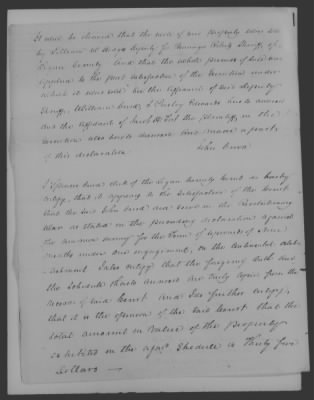 It will be observed that the sale of my property was made
by William W. deputy for Sheriff of
Logan County And that the whole proceeds of sale was
applied to the part satisfaction of the Execution under
which it was sold See the affidavit of said deputy
Sheriff, William Hurd, & Presley Edwards hereto annexed
and the affidavit of Jacob the Plaintiff in the
Execution also hereto annexed and made a part
of this declaration
John Hurd
I Spencer Curd clerk of the Logan County Court do hereby
certify that it appears to the satisfaction of the Court
that the said John Hurd did serve in the Revolutionary
War as stated in the preceding declaration against
the common enemy for the term of upwards of nine
months under one engagement, on the continental estab-
lishment I also certify that the foregoing oath and
the schedule thereto annexed are truly copied from the
record of said Court And I do further certify
that it is the opinion of the said Court that the
total amount in value of the property
exhibited in the afsd. Shedule is thirty five
Dollars